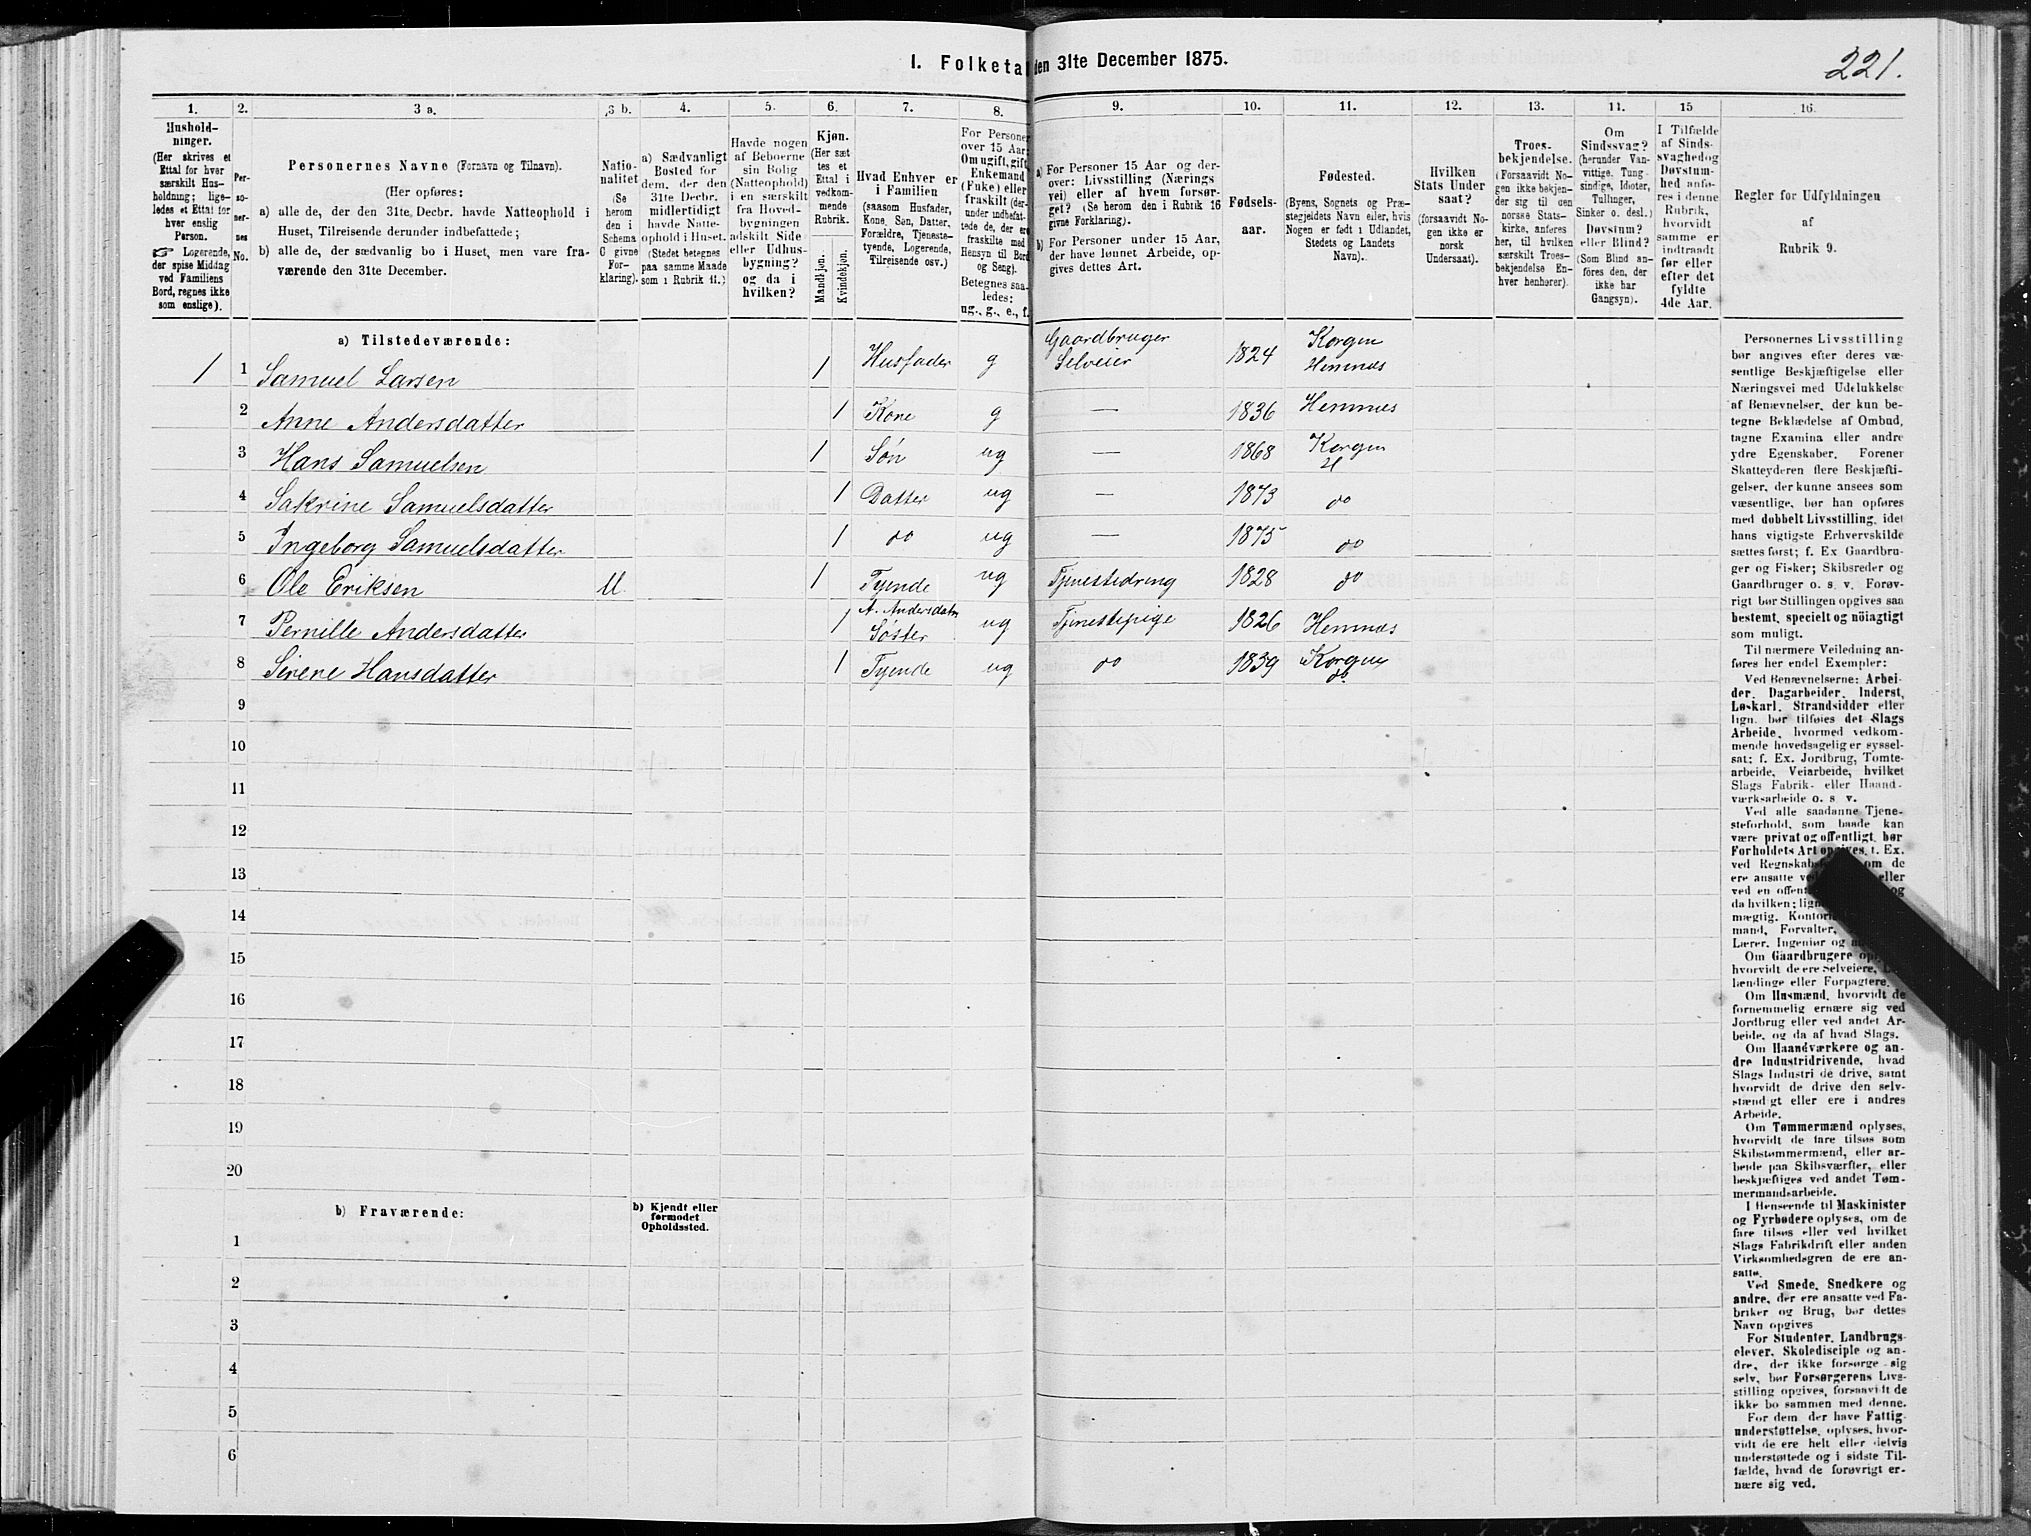 I. Folketa den 31te December 1875.
221.
1. 2. 3 a. 3 b. 4. 5. 6. 7. 8. 9. 10. 11. 12. 13. 14. 15 16.
Hushold-
ninger.
(Her skrives et
Ettal for hver
særskilt Hus-
holdning; lige-
ledes et Ettal for
hver enslig
Person.
Logerende,
der spise Middag
ved Familiens
Bord, regnes ikke
som enslige).
Per-
so-
ner-
nes
No.
Personernes Navne (Fornavn og Tilnavn).
(Her opføres:
a) alle de, der den 31te Decbr. havde Natteophold i
Huset, Tilreisende derunder indbefattede;
b) alle de, der sædvanlig bo i Huset, men vare fra-
værende den 31te December.
Natio-
nalitet
(Se
herom
den i
Schema
6 givne
For-
klaring).
a) Sædvanligt
Bosted for
dem, der den
31te Decbr.
midlertidigt
havde Natte-
ophold i Huset.
(Stedet betegnes
paa samme Maade
som i Rubrik 11.)
Havde nogen
af Beboerne
sin Bolig
(Natteophold)
i en særskilt
fra Hoved-
bygningen
adskilt Side
eller Udhus-
bygning?
og da i
hvilken?
Kjøn.
(Her sæt
tes et
Ettal i
vedkom-
mende
Rubrik.
Mandkjøn.
Kvindekjøn.
Hvad Enhver er
i Familien
(saasom Husfader,
Kone, Søn, Datter,
Forældre, Tjeneste-
tyende, Logerende,
Tilreisende osv.)
For Personer
over 15 Aar:
Om ugift, gift,
Enkemand
(Fuke) eller
fraskilt (der-
under indbefat-
tede de, der ere
fraskilte med
Hensyn til Bord
og Seng).
Betegnes saa-
ledes:
ug., g., e., f.
a) For Personer 15 Aar og der-
over: Livsstilling (Nærings
vei) eller af hvem forsør-
get? (Se herom den i Rubrik 16
givne Forklaring).
b) For Personer under 15 Aar,
der have lønnet Arbeide, op-
gives dettes Art.
Fødsels-
aar.
Fødested.
(Byens, Sognets og Præ-
stegjeldets Navn eller, hvis
Nogen er født i Udlandet,
Stedets og Landets
Navn).
Hvilken
Stats Under
saat?
(forsaavidt No-
gen ikke er
norsk
Undersaat).
Troes-
bekjendelse.
(Forsaavidt No-
gen ikke bekjen-
der sig til den
norske Stats-
kirke, anføres
her, til hvilken
særskilt Troes-
bekjendelse En-
hver henhører).
Om
Sindssvag?
(herunder Van-
vittige, Tung-
sindige, Idioter,
Tullinger,
Sinker o. desl.)
Døvstum?
eller Blind?
(Som Blind an-
føres den, der
ikke har
Gangsyn).
I Tilfælde
af Sinds-
svaghed og
Døvstum-
hed anfø-
res i denne
Rubrik,
hvorvidt
samme er
indtraadt
før eller
efter det
fyldte
4de Aar.
Regler for Udfyldningen
af
Rubrik 9.
a) Tilstedeværende:
1 1 Samuel Larsen 1 Husfader g Gaardbruger Selveier 1824 Korgen Hemnæs
2 Anne Andersdatter 1 Kone g — 1836 Hemnæs
3 Hans Samuelsen 1 Søn ug — 1868 Korgen H
4 Sakrine Samuelsdatter 1 Datter ug — 1873 do
5 Ingeborg Samuelsdatter 1 do ug — 1875 do
6 Ole Eriksen U. 1 Tyende ug Tjenestedreng 1828 do
7 Pernille Andersdatter 1 A. Andersdatr Søster ug Tjenestepige 1826 Hemnæs
8 Sirene Hansdatter 1 Tyende ug do 1839 Korgen do
9
10
11
12
13
14
15
16
17
18
19
20
b) Fraværende:
b) Kjendt eller
formodet
Opholdssted.
1
2
3
4
5
6
Personernes Livsstilling
bør angives efter deres væ-
sentlige Beskjæftigelse eller
Næringsvei med Udelukkelse
af Benævnelser, der kun be-
tegne Beklædelse af Ombud,
tagne Examina eller andre
ydre Egenskaber. Forener
Skatteyderen flere Beskjæfti-
gelser, der kunne ansees som
væsentlige, bør han opføres
med dobbelt Livsstilling, idet
hans vigtigste Erhvervskilde
sættes først; f. Ex Gaardbru-
ger og Fisker; Skibsreder og
Gaardbruger o. s. v. Forøv-
rigt bør Stillingen opgives saa
bestemt, specielt og nöiagtigt
som muligt.
Til nærmere Veiledning an-
føres her endel Exempler:
Ved Benævnelserne: Arbei-
der, Dagarbeider, Inderst,
Løskarl, Strandsidder eller
lign. bør tilføies det Slags
Arbeide, hvormed vedkom-
mende hovedsagelig er syssel-
sat; f. Ex. Jordbrug, Tomte-
arbeide, Veiarbeide, hvilket
Slags Fabrik- eller Haand-
værksarbeide o. s v.
Ved alle saadanne Tjene-
steforhold, som baade kan
være privat og offentligt, bør
Forholdets Art opgives, t. Ex.
ved Regnskabs om de
ere ansatte ved eller
ved en offent og
da hvilken; lign
mægtig. Kontori
mand, Forvalter,
Lærer. Ingeniør og
Om Gaardbrugere oply
hvorvidt de ere Selveiere,
lændinge eller Forpagtere.
Om Husmænd, hvorvidt de
fornemmelig ernære sig ved
Jordbrug eller ved andet Ar-
beide, og da af hvad Slags.
Om Haandværkere og an-
dre Industridrivende, hvad
Slags Industri de drive, samt
hvorvidt de drive den selv-
stændigt eller ere i andres
Arbeide.
Om Tømmermænd oplyses,
hvorvidt de fare tilsøs som
Skibstømmermænd, eller ar-
beide paa Skibsværfter, eller
beskjæftiges ved andet Tøm-
mermandsarbeide.
I Henseende til Maskinister
og Fyrbødere oplyses, om de
fare tilsøs eller ved hvilket
Slags Fabrikdrift eller anden
Virksomhedsgren de ere an-
satte.
Ved Smede, Snedkere og
andre, der ere ansatte ved Fa-
briker og Brug, bør dettes
Navn opgives
For Studenter, Landbrugs-
elever, Skoledisciple og an-
dre, der ikke forsørge sig
selv, bør Forsørgerens Livs-
stilling opgives, forsaavidt de
ikke bo sammen med denne.
For dem, der have Fattig-
understøttelse, oplyses, hvor-
vidt de ere helt eller delvis
understøttede og i sidste Til-
fælde, hvad de forøvrigt er-
nære sig ved.